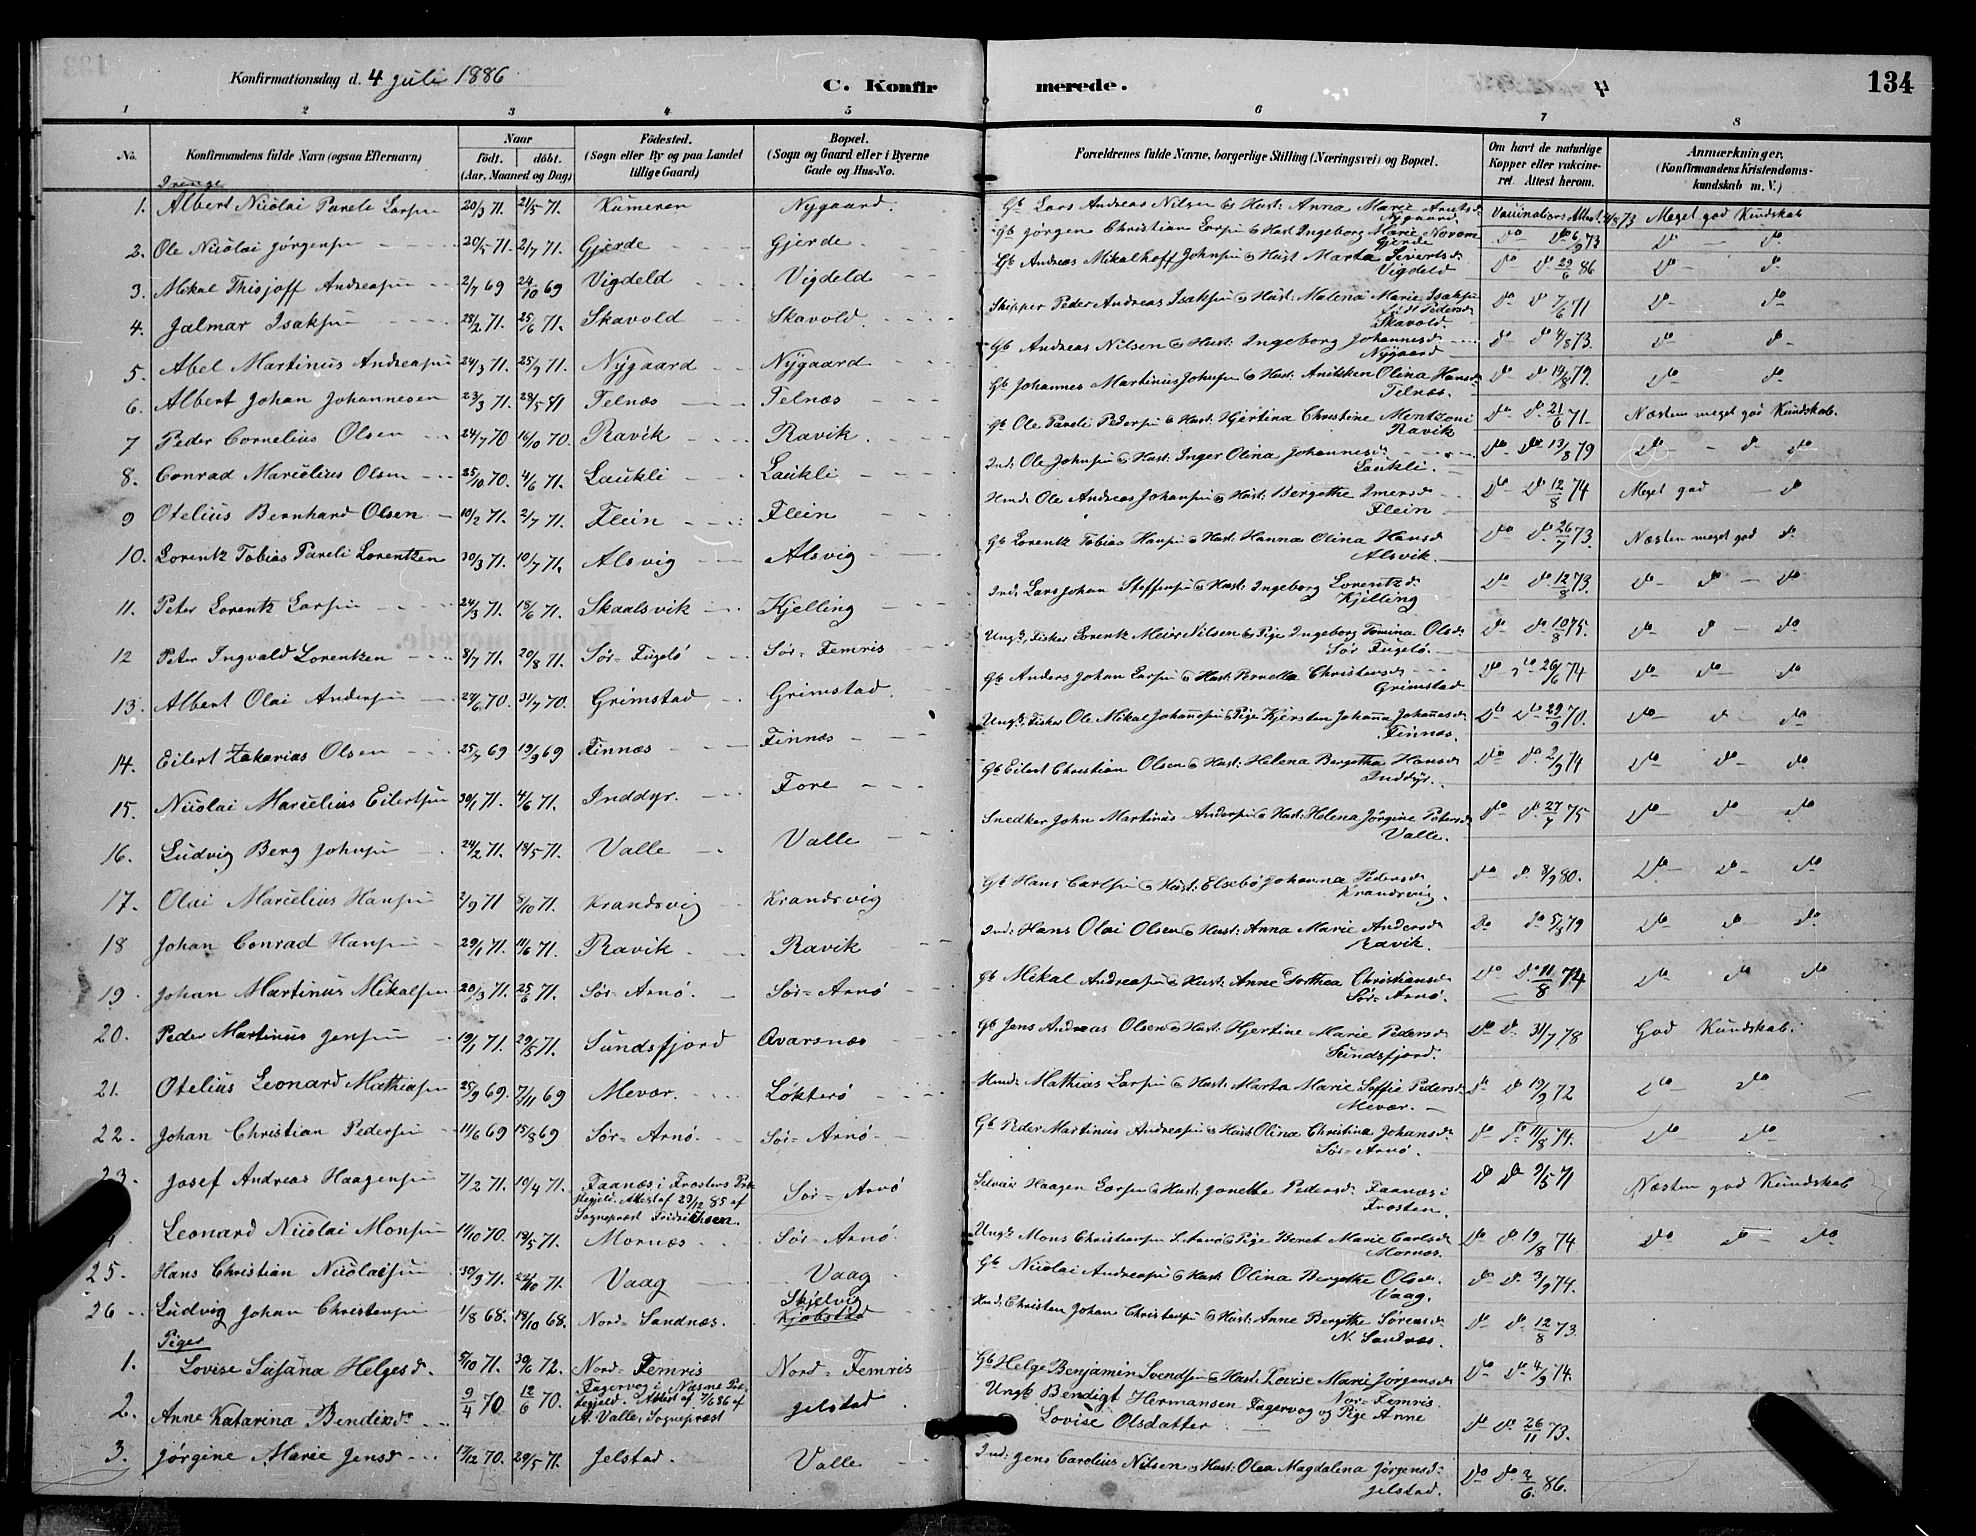 Konfirmationsdag d. 4 Juli 1886
C. Konfirmerede.
134
1 2 3 4 5 6 7 8
No. Konfirmandens fulde Navn (ogsaa Efternavn) Naar födt. döbt. (Aar, Maaned og Dag) Födested. (Sogn eller By og paa Landet tillige Gaard) Bopæl. (Sogn og Gaard eller i Byerne Gade og Hus-No. Forældrenes fulde Navne, borgerlige Stilling (Næringsvei) og Bopæl. Om havt de naturlige Kopper eller vakcineret. Attest herom. Anmærkninger, (Konfirmandens Kristendomskundskab m. V.)
Drenge
1. Albert Nicolai Pareli Larsen 20/3 71. 21/5 71. Kumeren Nygaard. Gb Lars Andreas Nilsen & Hust. Anna Marie Arntsd. Nygaard. Vaccinations Attest 4/8 73 Meget god Kundskab
2. Ole Nicolai Jørgensen 20/5 71. 2/7 71. Gjerde Gjerde Gb Jørgen Christian Larsen & Hust Ingeborg Marie Gjerde Do Do 6/9 73 Do Do
3. Mikal Thisjoff Andreasen 2/7 69 24/10 69 Vigdeld Vigdeld Gb Andreas Mikalhoff Johnsen & Hust Marta Sivertsd. Vigdeld Do Do 29/6 86 Do Do
4. Jalmar Isaksen 28/2 71. 25/6 71. Skavold Skavold. Skipper Peder Andreas Isaksen & Hust: Malena Marie Isaksen föd Pedersd. Skavold. Do Do 7/6 71 Do Do
5. Abel Martinus Andreasen 24/3 71. 25/9 71. Nygaard Nygaard Gb Andreas Nilsen & Hust: Ingeborg Johannesd. Nygaard Do Do 4/8 73. Do Do
6. Albert Johan Johannesen 23/3 71. 28/5 71 Telnæs Telnæs Gb Johannes Martinus Johnsen & Hust: Anitsken Olina Hansd. Telnæs. Do Do 19/8 79. Do Do
7 Peder Cornelius Olsen 24/7 70 16/10 70. Ravik Ravik. Gb Ole Pareli Pedersen & Hust. Hjertina Christine Mentzoni Ravik Do Do 21/6 71. Næsten meget god Kundskab.
8. Conrad Marcelius Olsen 25/10 70. 4/6 71. Laukli Laukli Ind: Ole Johnsen & Hust: Inger Olina Johannesd. Laukli. Do Do 13/8 79 Do Do Do
9 Otelius Bernhard Olsen 10/2 71. 2/7 71. Flein Flein Hmd. Ole Andreas Johansen & Hust: Bergethe Imersd. Flein Do Do 12/8 74 Meget god Do
10. Lorentz Tobias Pareli Lorentzen 30/3 71. 10/7 71. Alsvig Alsvig Gb Lorentz Tobias Hansen & Hust: Hanna Olina Hansd Alsvik. Do Do 26/7 73. Næsten meget god Do
11. Peter Lorentz Larsen 24/3 71. 18/6 71. Skaalsvik Kjelling Ind: Lars Johan Steffensen & Hust: Ingeborg Lorentzd. Kjelling Do Do 12/8 73. Do Do Do
12 Peter Ingvald Lorentzen 8/7 71. 20/8 71. Sör-Fugelö Sör-Femris Ungk. Fisker Lorentz Meier Nilsen & Pige Ingeborg Tomina Olsd. Sör Fugelö. Do Do 10/8 75. Do Do Do
13. Albert Olai Andersen 24/6 70. 31/7 70. Grimstad Grimstad. Gb Anders Johan Larsen & Hust: Pernella Christensd. Grimstad Do Do 26/6 74 Do Do Do
14. Eilert Zakarias Olsen 25/7 69 19/9 69 Finnæs Finnæs Ungk. Fisker Ole Mikal Johannesen & Pige Kjersten Johanna Johannesd. Finnæs. Do Do 29/9 70. Do Do Do
15. Nicolai Marcelius Eilertsen 30/1 71. 4/6 71. Inddyr. Fore Gb Eilert Christian Olsen & Hust: Helena Bergetha Hansd. Inddyr. Do Do 2/9 74 Do Do Do
16. Ludvig Berg Johnsen 24/2 71. 18/5 71. Valle Valle Snedker John Martinus Andersen & Hust: Helena Jørgine Petersd. Valle. Do Do 27/7 75 Do Do Do
17. Olai Marcelius Hansen 2/9 71 8/10 71. Krandsvig Krandsvig Gb Hans Carlsen & Hust: Elsebö Johanna Pedersd. Krandsvig. Do Do 8/9 80. Do Do Do
18 Johan Conrad Hansen 29/1 71. 11/6 71. Ravik. Ravik Ind: Hans Olai Olsen & Hust: Anna Marie Andersd. Ravik. Do Do 5/8 79 Do Do Do
19. Johan Martinus Mikalsen 20/3 71. 25/6 71. Sör-Arnö. Sör-Arnö Gb Mikal Andreasen & Hust: Anne Dorthea Christiansd. Sör-Arnö. Do Do 11/8 74 Do Do Do
20. Peder Martinus Jensen 19/1 71. 29/5 71. Sundsfjord Qvarsnæs Gb Jens Andreas Olsen & Hust: Hjertine Marie Pedersd. Sundsfjord. Do Do 31/7 78 God Kundskab.
21. Otelius Leonard Mathiasen 25/9 69. 7/11 69 Mevær. Løkterö Hmd: Mathias Larsen & Hust: Marta Marie Soffie Pedersd. Mevær. Do Do 19/9 72 Do Do
22. Johan Christian Pedersen 11/6 69 15/8 69 Sör-Arnö. Sör-Arnö. Gb Peder Martinus Andreasen & Hust Olina Christina Johansd. Sör-Arnö. Do Do 11/8 74. Do Do
23. Josef Andreas Haagensen 7/2 71. 10/4 71. Faanæs i Frostens Præstegjeld. Attest af 29/12 85 af Sognepræst Fridrichsen. Sör-Arnö Haagen Larsen & Hust: Janetta Pedersd. Faanæs i Frosten. Do Do 9/5 71 Næsten god Kundskab
Leonard Nicolai Monsen 11/10 70. 19/5 71. Mornæs Sör-Arnö. Ungk. Mons Christensen S. Arnö & Pige Beret Marie Carlsd. Mornæs. Do Do 19/8 74 Do Do Do
25. Hans Christian Nicolaisen 30/9 71. 22/10 71. Vaag Vaag Gb Nicolai Andreasen & Hust: Olina Bergethe Olsd. Vaag. Do Do 3/9 74.
26 Ludvig Johan Christensen 1/8 68. 18/10 68. Nord-Sandnæs. Skjelvig Kjöbstad Hmd: Christen Johan Christensen & Hust: Anne Bergethe Sörensd. N. Sandnæs. Do Do 12/8 73.
Piger
1. Lovise Susana Helgesd. 5/10 71. 30/6 72. Nord-Femris Nord-Femris Gb Helge Benjamin Svendsen & Hust: Lovise Marie Jørgensd. Nor-Femris. Do Do 4/9 74.
2. Anne Katarina Bendixd. 9/4 70 12/6 70. Fagervog i Næsne Præstegjeld. Attest af 7/6 86 af A. Valle, Sognepræst Jelstad Ungk. Bendigt Hermansen Fagervog og Pige Anne Lovise Olsdatter. Do Do 26/11 73.
3. Jørgine Marie Jensd 17/12 70. 29/5 71. Jelstad. Valle Ind: Jens Carolius Nilsen & Hust: Olea Magdalena Jørgensd. Jelstad. Do Do 2/6 86.